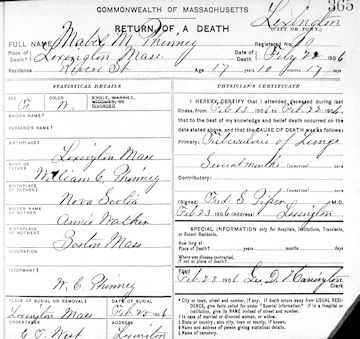 COMMONWEALTH OF MASSACHUSETTS
365
RETURN OF A DEATH
Lexington
(CITY OR TOWN.)
FULL NAME Mabel M. Phinney Registered No. 10
Place of Death Lexington Mass. Date of Death Feb'y 22 1906
Residence St. Age 17 years 10 months 17 days
STATISTICAL DETAILS
SEX F COLOR W. SINGLE, MARRIED, WIDOWED, OR DIVORCED
MAIDEN NAME
HUSBAND'S NAME
BIRTHPLACE
Lexington Mass
NAME OF FATHER William E. Phinney
BIRTHPLACE OF FATHER
Nova Scotia
MAIDEN NAME OF MOTHER Annie Walker
BIRTHPLACE OF MOTHER
Boston Mass
OCCUPATION
INFORMANT
W. E. Phinney
PLACE OF BURIAL OR REMOVAL DATE OF BURIAL
Lexington Mass Feb 25 1906
UNDERTAKER ADDRESS
C. T. West Lexington
PHYSICIAN'S CERTIFICATE
I HEREBY CERTIFY that I attended deceased during last
illness, from Feb 11 1906 to Feb 22 1906 that
to the best of my knowledge and belief death occurred on the
date stated above, and that the CAUSE OF DEATH was as follows:
Primary: Tuberculosis of Lungs
Several months (DURATION)
Contributory:
(DURATION)
(Signed) Fred S. Piper M.D.
Feb 23 1906 (Address) Lexington
SPECIAL INFORMATION only for Hospitals, Institutions, Transients, or Recent Residents.
How long at Place of Death? years months days
Where was disease contracted, if not at place of death?
Filed Feb 23 1906 Geo. D. Harrington
Clerk
* City or town, street and number, if any. If death occurs away from USUAL RESIDENCE, give facts called for under "Special Information." If in a hospital or institution, give its NAME instead of street and number.
† In case of married or divorced woman, or widow.
‡ State or country; also city, town or county, if known.
§ Name and address of person giving statistical details.
‖ Name of cemetery.